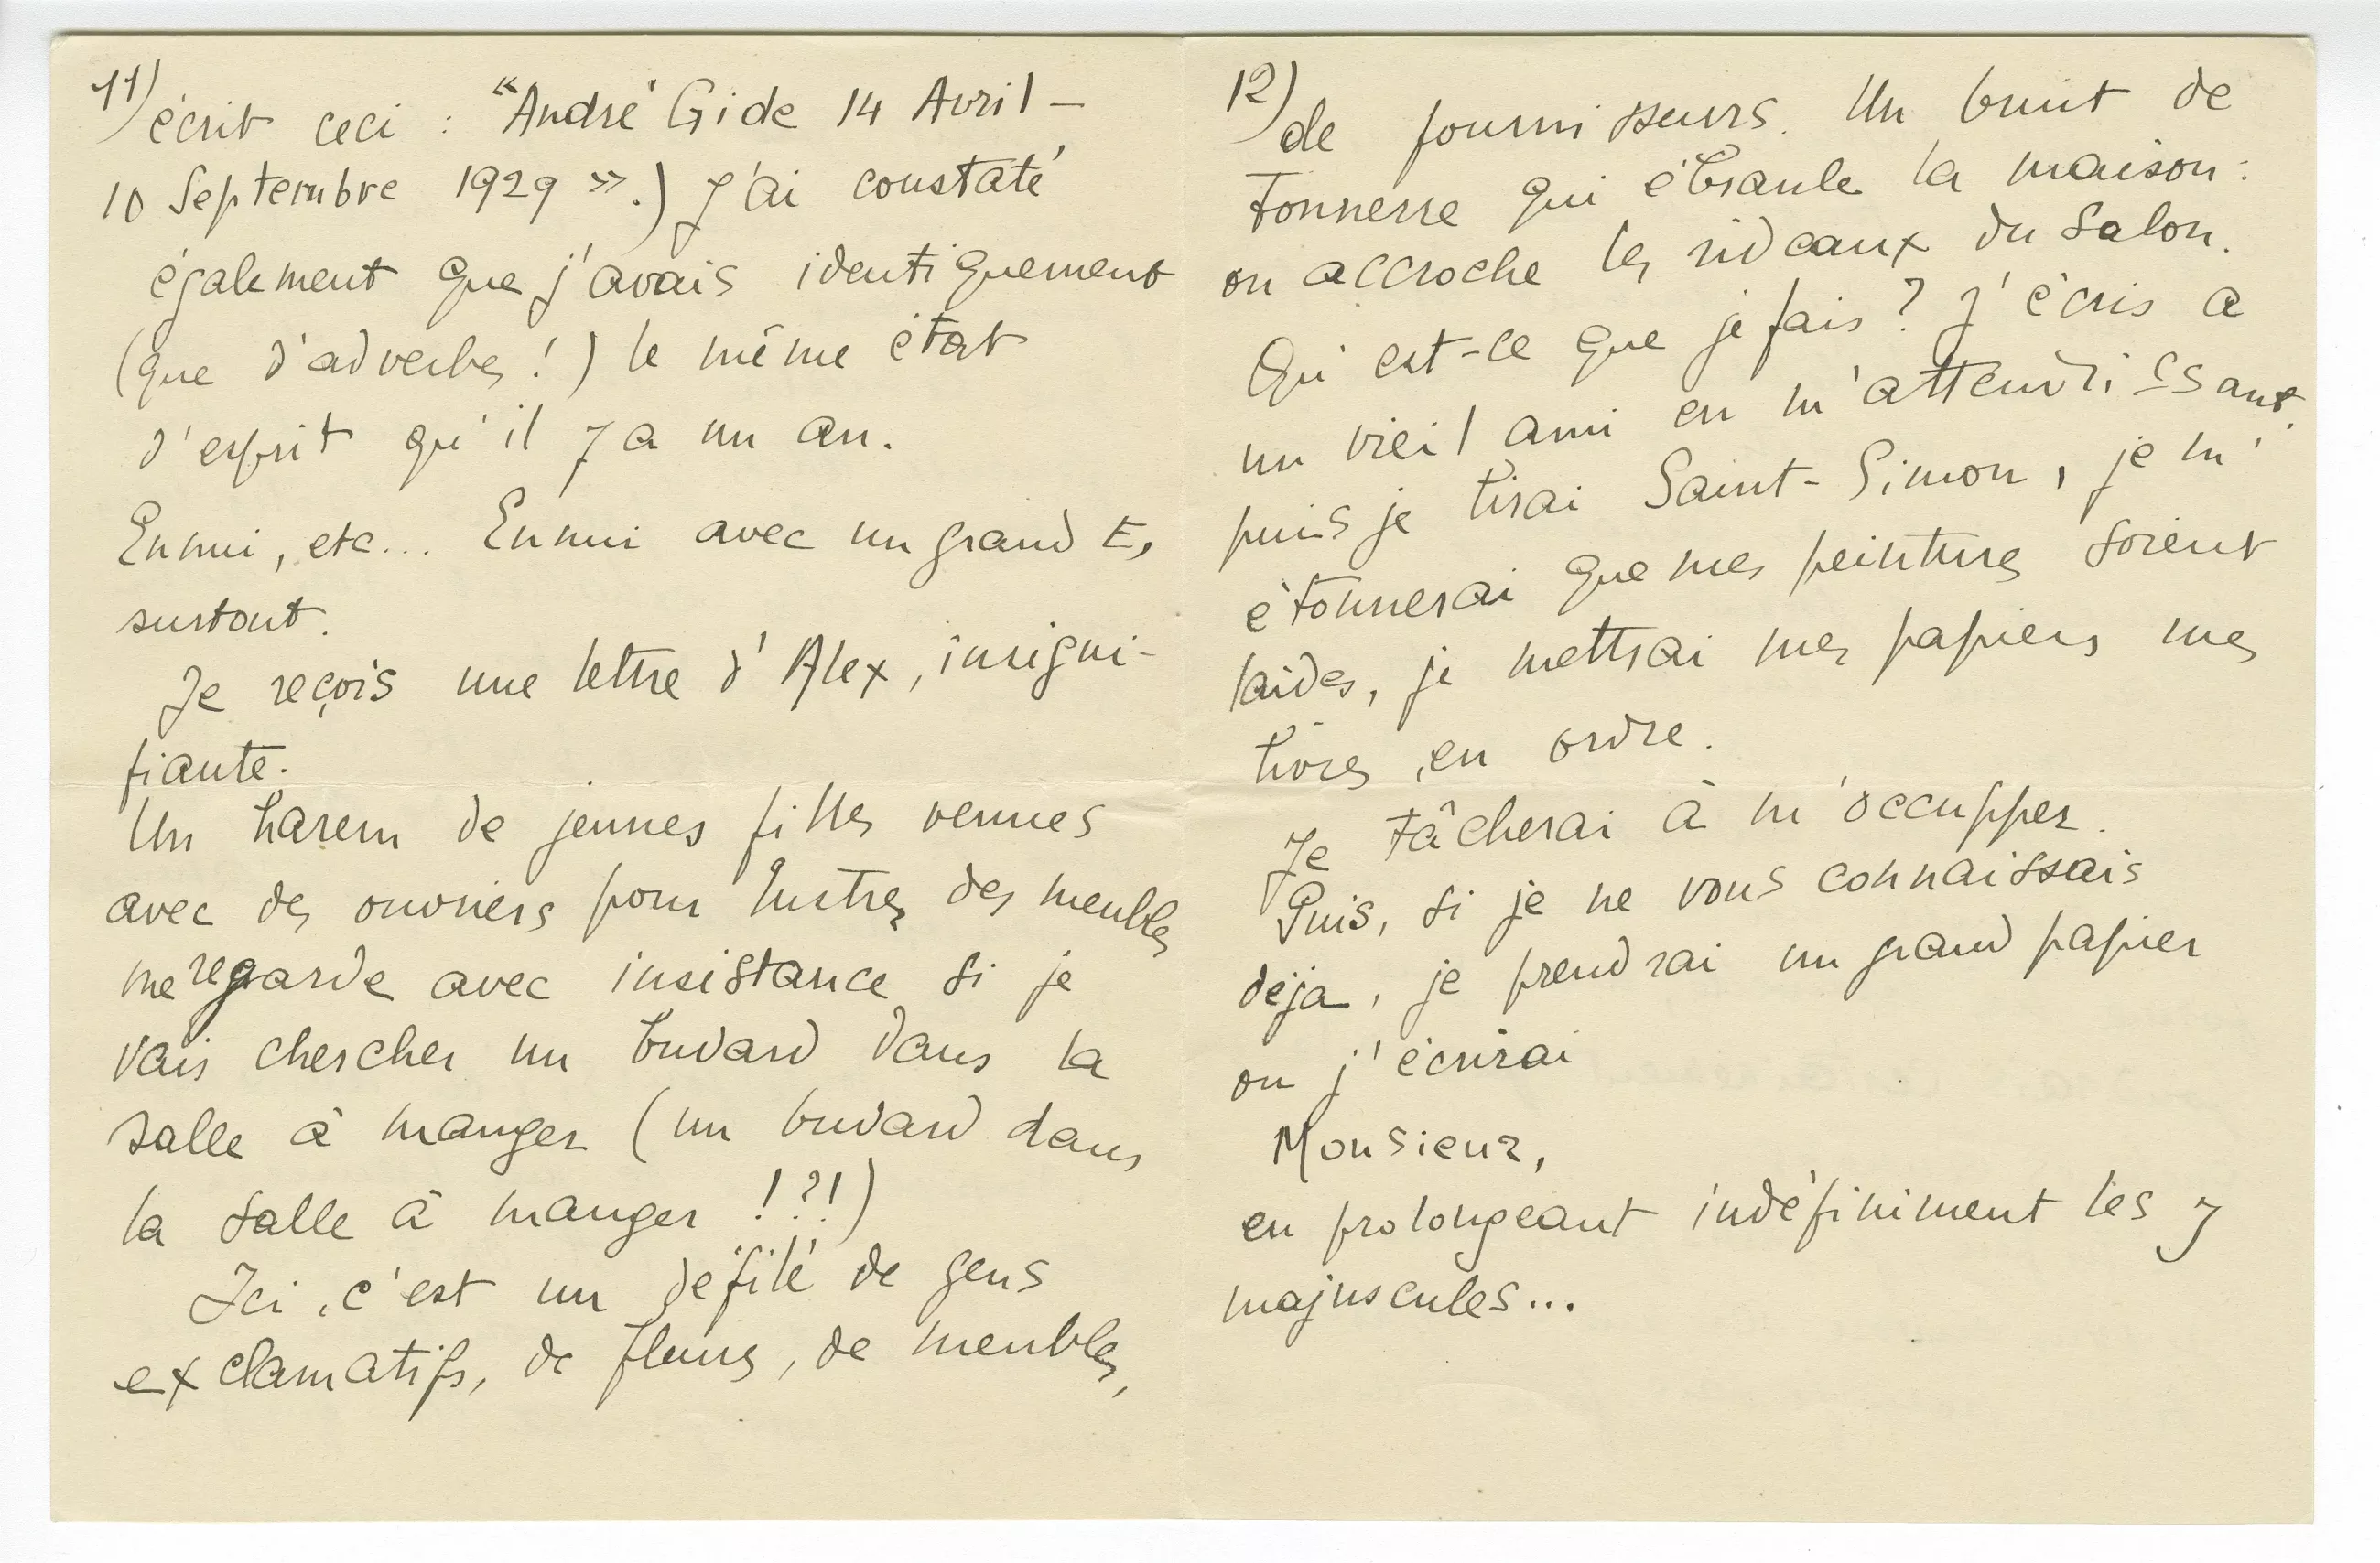 11)
écrit ceci : "André Gide 14 Avril –
10 Septembre 1929 ».) J'ai constaté
également que j'avais identiquement
(que d'adverbes !) le même état
d'esprit qu'il y a un an.
Ennui, etc... Ennui avec un grand E,
surtout.
Je reçois une lettre d'Alex, insigni-
fiante.
Un harem de jeunes filles venues
avec des ouvriers pour lustrer des meubles
me regarde avec insistance si je
vais chercher un buvard dans la
salle à manger (un buvard dans
la salle à manger !?!)
Ici, c'est un défilé de gens
exclamatifs, de fleurs, de meubles,
12)
de fournisseurs. Un bruit de
tonnerre qui ébranle la maison :
on accroche les rideaux du salon.
Qu'est-ce que je fais ? J'écris a
un vieil ami en m'attendrissant,
puis je lirai Saint-Simon, je m'
étonnerai que mes peintures soient
laides, je mettrai mes papiers mes
livres, en ordre.
Je tâcherai à m'occupper.
Puis, si je ne vous connaissais
déja, je prendrai un grand papier
ou j'écrirai
Monsieur,
en prolongeant indéfiniment les J
majuscules...